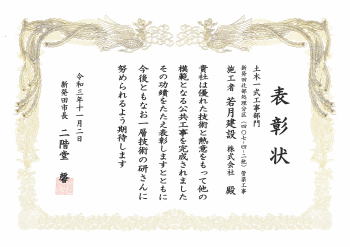 表彰状
土木一式工事部門
新発田北部処理分区(四〇七-四-二他)管渠工事
施工者 若月建設 株式会社 殿
貴社は優れた技術と熱意をもって他の
模範となる公共工事を完成されました
その功績をたたえ表彰しますとともに
今後ともなお一層技術の研さんに
努められるよう期待します
令和三年十一月二日
新発田市長 二階堂 馨